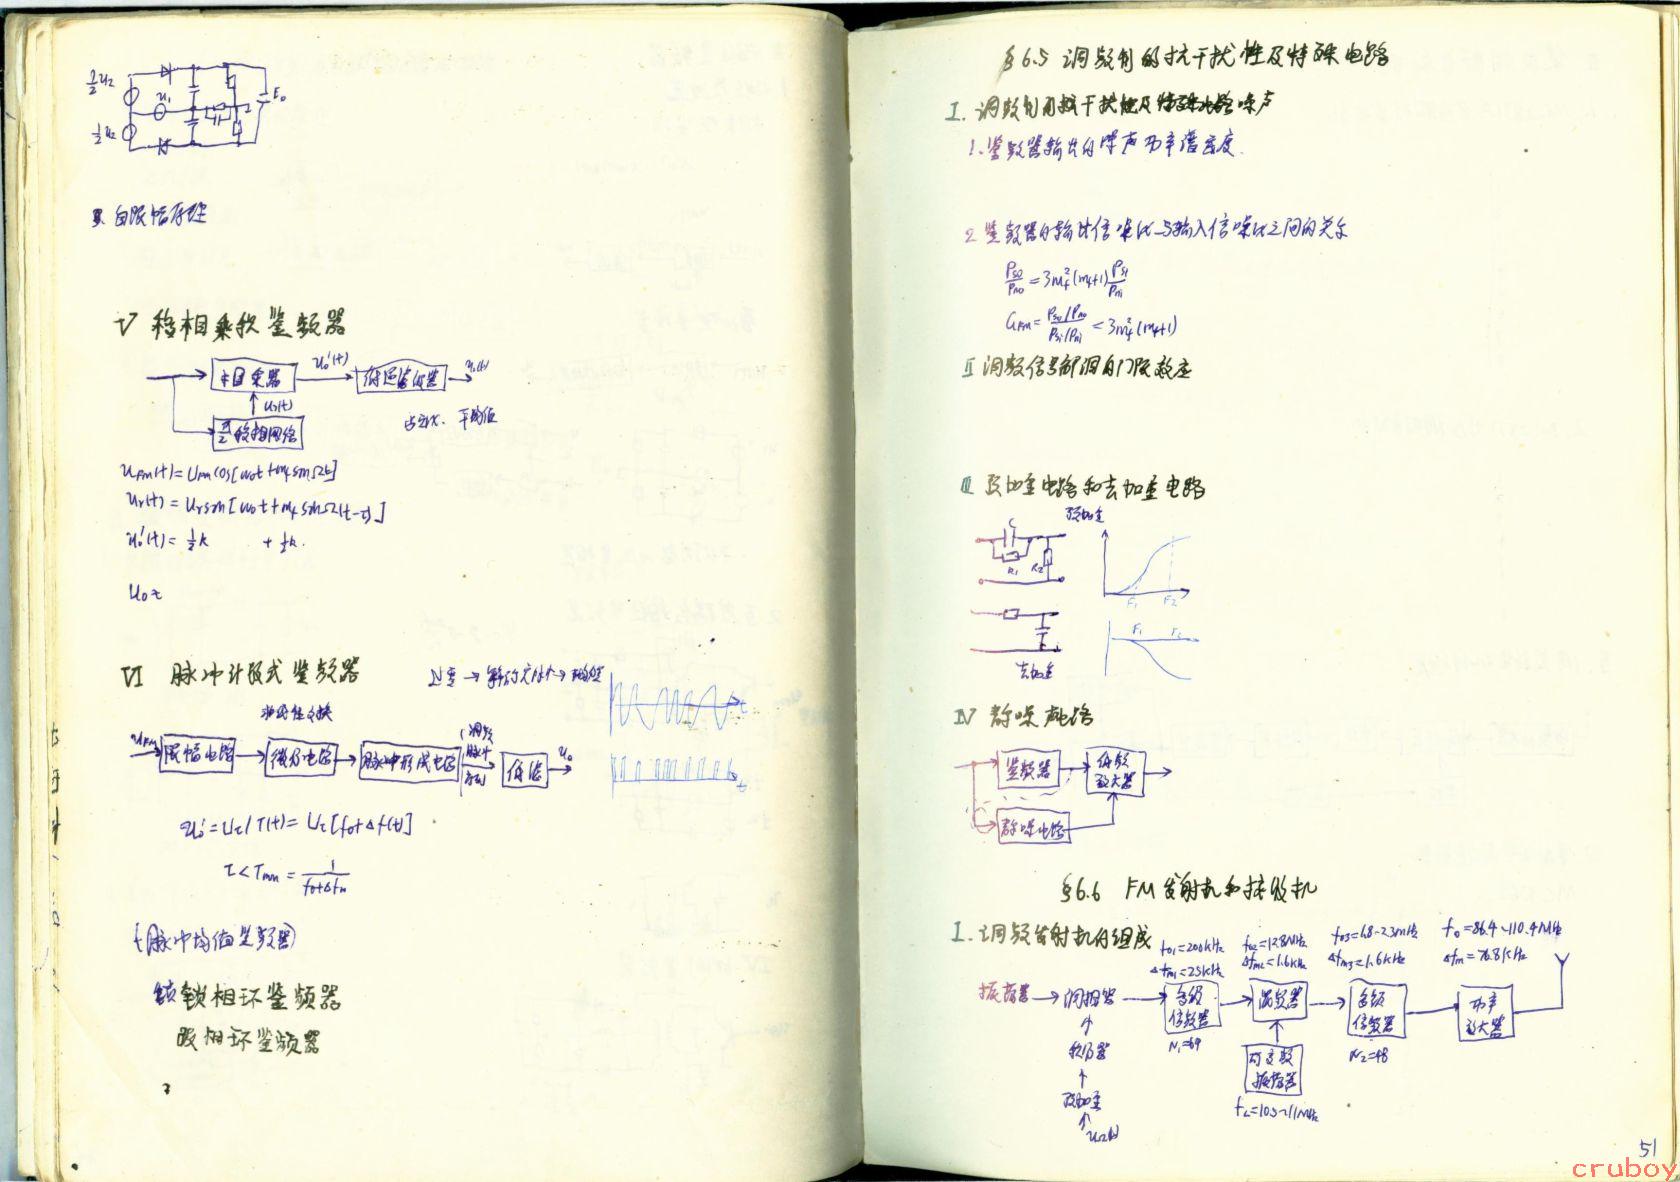 ½U₂
U₁
E₀
½U₂
自限幅原理
V 移相乘积鉴频器
相乘器
u₀'(t)
低通滤波器
u₀(t)
uᵣ(t)
π/2 移相网络
平均值
u_FM(t)=U_FM cos[ω₀t+m_f sinΩt]
uᵣ(t)=Uᵣ sin[ω₀t+m_f sinΩ(t-τ)]
u₀'(t)=½k + ½k.
U₀=
VI 脉冲计数式鉴频器
非线性变换
u_FM
限幅电路
微分电路
脉冲形成电路
调频脉冲序列
低滤
u₀
t
t
u₀'=Uτ/T(t)=Uτ[f₀+Δf(t)]
τ<Tmin=1/(f₀+Δfm)
(脉冲均值鉴频器)
锁相环鉴频器
§6.5 调频制的抗干扰性及特殊电路
I. 调频制的抗干扰性及噪声
1. 鉴频器输出的噪声功率谱密度.
2. 鉴频器的输出信噪比与输入信噪比之间的关系
Pso/Pno=3m_f²(m_f+1)Psi/Pni
G_FM=(Pso/Pno)/(Psi/Pni)=3m_f²(m_f+1)
II 调频信号解调的门限效应
III 预加重电路和去加重电路
预加重
C
R₁ R₂
F₁ F₂
F₁ F₂
去加重
IV 静噪电路
鉴频器
低频放大器
静噪电路
§6.6 FM发射机和接收机
I. 调频发射机的组成
f₀₁=200kHz
Δfm₁=25Hz
f₀₂=12.8MHz
Δfm₂=1.6kHz
f₀₃=1.8~2.3MHz
Δfm₃=1.6kHz
f₀=86.4~110.4MHz
Δfm=76.8kHz
振荡器
调相器
多级倍频器
混频器
多级倍频器
功率放大器
N₁=69
N₂=48
积分器
可变频振荡器
预加重
f_L=10.5~11MHz
u_Ω(t)
51
cruboy